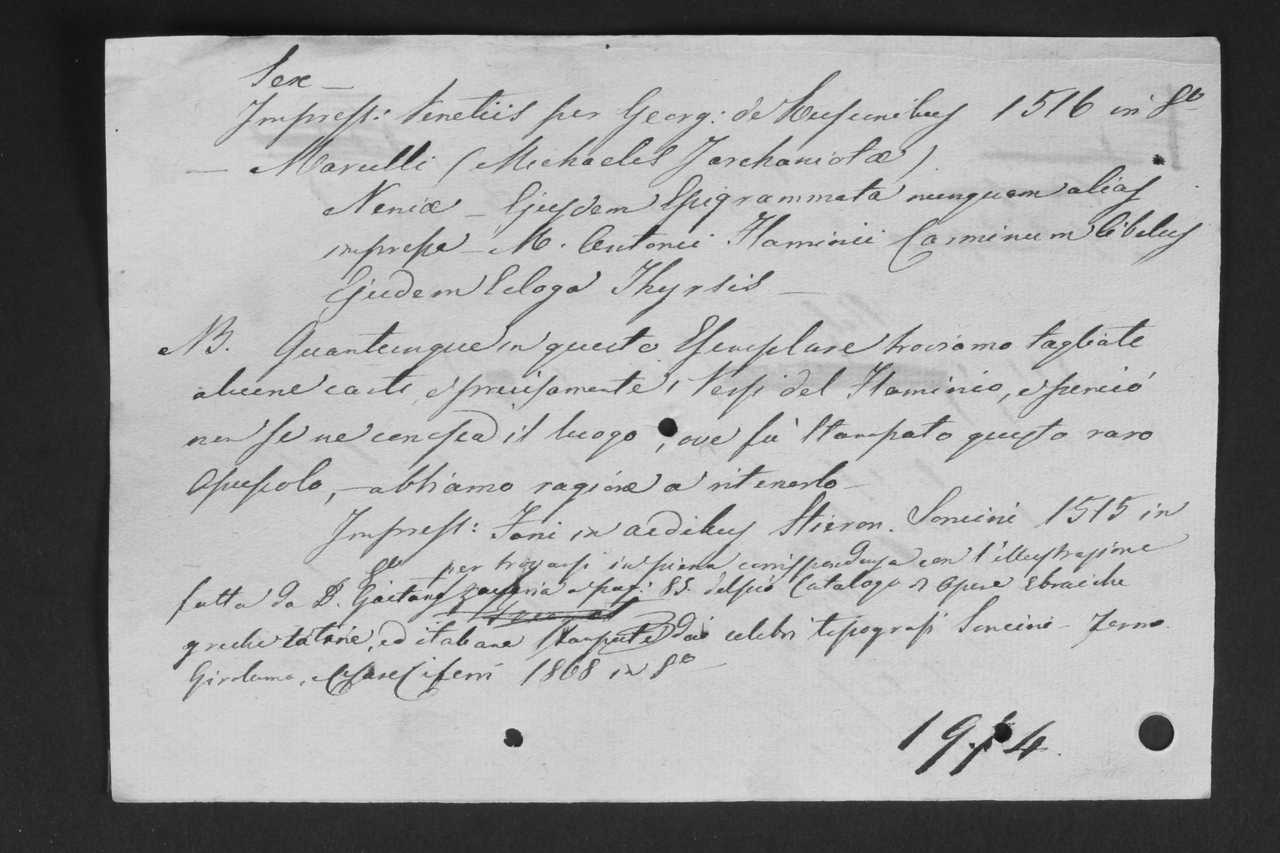 Sex —
Impress: Venetiis per Georg: de Rusconibus 1516 in 8º
— Marulli (Michaelis Tarchaniotæ)
Neniæ — Ejusdem Epigrammata nunquam alias
impressa — M. Antonii Flaminii Carminum libellus
Ejudem Ecloga Thyrsis —
NB. Quantunque in questo Esemplare troviamo tagliate
alcune carte, e precisamente i versi del Flaminio, e perciò
non se ne conosca il luogo, ove fù stampato questo raro
Opuscolo, — abbiamo ragione a ritenerlo —
Impress: Fani in aedibus Hieron. Soncini 1515 in
8º per trovarsi in piena corrispondenza con l'illustrazione
fatta da D. Gaetano Zaccaria a pag: 85. del suo Catalogo di Opere Ebraiche
greche latine, ed italiane stampate dai celebri tipografi Soncini — Fermo
Girolamo, e Cesare Ciferri 1868 in 8º —
1974